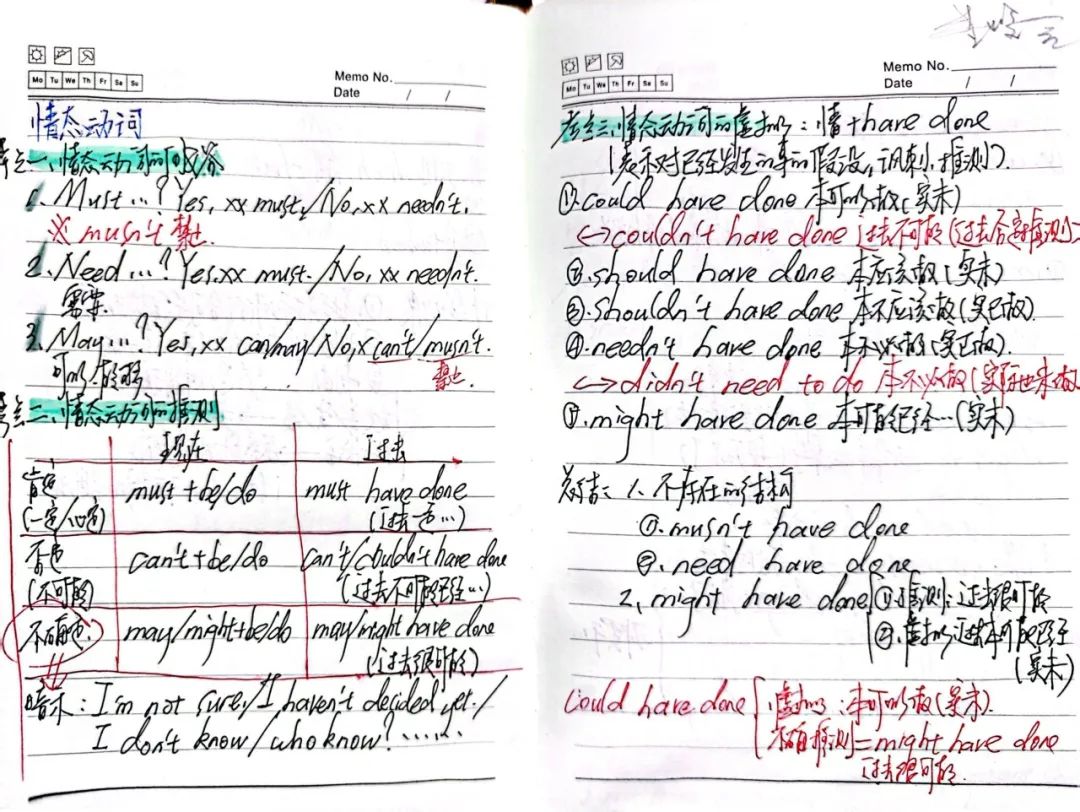 Mo Tu We Th Fr Sa Su
Memo No.
Date / /
情态动词
考点一、情态动词的回答
1. Must...? Yes, xx must./No, xx needn't.
※ musn't 禁止.
2. Need...? Yes, xx must. /No, xx needn't.
需要
3. May...? Yes, xx can/may/No, x can't/musn't.
可以、能够 禁止.
考点二、情态动词的推测
现在 过去
肯定 must + be/do must have done
(一定/必定) (过去一定...)
否定 can't + be/do can't/couldn't have done
(不可能) (过去不可能已经...)
不确定: may/might+be/do may/might have done
(过去很可能)
暗示: I'm not sure./I haven't decided yet./
I don't know/who know?......
Mo Tu We Th Fr Sa Su
Memo No.
Date / /
考点三、情态动词的虚拟: 情+have done
(表示对已经发生的事的假设, 讽刺, 推测).
①.could have done 本可以做(实未)
↔couldn't have done 过去不可能(过去否定推测)
②.should have done 本应该做(实未)
③.shouldn't have done 本不应该做(实已做).
④.needn't have done 本不必做(实已做).
↔didn't need to do 本不必做(实际也未做)
⑤.might have done 本可能已经...(实未)
总结: 1. 不存在的结构
①.musn't have done
②.need have done
2. might have done ①推测: 过去很可能
②.虚拟: 过去本可能已经
(实未)
could have done 虚拟: 本可以做(实未).
不确推测=might have done
过去很可能.